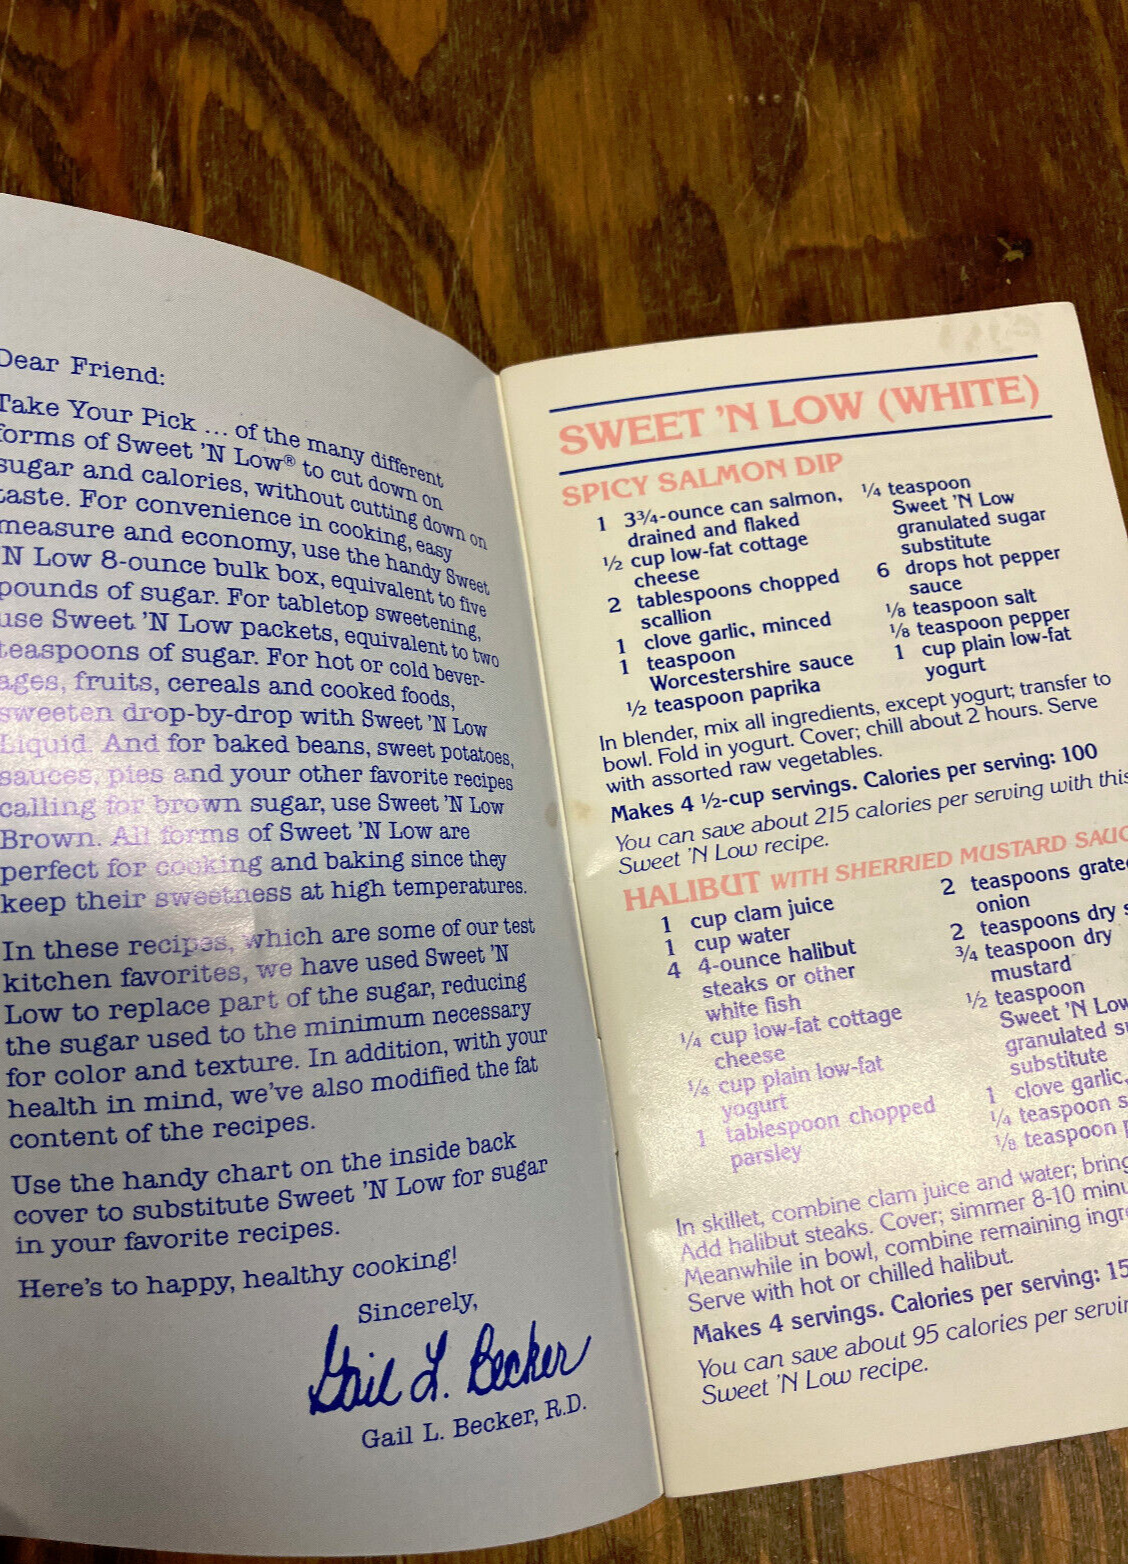 Dear Friend:
Take Your Pick ... of the many different
forms of Sweet 'N Low® to cut down on
sugar and calories, without cutting down on
taste. For convenience in cooking, easy
measure and economy, use the handy Sweet
'N Low 8-ounce bulk box, equivalent to five
pounds of sugar. For tabletop sweetening,
use Sweet 'N Low packets, equivalent to two
teaspoons of sugar. For hot or cold bever-
ages, fruits, cereals and cooked foods,
sweeten drop-by-drop with Sweet 'N Low
Liquid. And for baked beans, sweet potatoes,
sauces, pies and your other favorite recipes
calling for brown sugar, use Sweet 'N Low
Brown. All forms of Sweet 'N Low are
perfect for cooking and baking since they
keep their sweetness at high temperatures.
In these recipes, which are some of our test
kitchen favorites, we have used Sweet 'N
Low to replace part of the sugar, reducing
the sugar used to the minimum necessary
for color and texture. In addition, with your
health in mind, we've also modified the fat
content of the recipes.
Use the handy chart on the inside back
cover to substitute Sweet 'N Low for sugar
in your favorite recipes.
Here's to happy, healthy cooking!
Sincerely,
Gail L. Becker
Gail L. Becker, R.D.
SWEET 'N LOW (WHITE)
SPICY SALMON DIP
1 3¾-ounce can salmon,
drained and flaked
½ cup low-fat cottage
cheese
2 tablespoons chopped
scallion
1 clove garlic, minced
1 teaspoon
Worcestershire sauce
½ teaspoon paprika
¼ teaspoon
Sweet 'N Low
granulated sugar
substitute
6 drops hot pepper
sauce
⅛ teaspoon salt
⅛ teaspoon pepper
1 cup plain low-fat
yogurt
In blender, mix all ingredients, except yogurt; transfer to
bowl. Fold in yogurt. Cover; chill about 2 hours. Serve
with assorted raw vegetables.
Makes 4 ½-cup servings. Calories per serving: 100
You can save about 215 calories per serving with this
Sweet 'N Low recipe.
HALIBUT WITH SHERRIED MUSTARD SAUC
1 cup clam juice
1 cup water
4 4-ounce halibut
steaks or other
white fish
¼ cup low-fat cottage
cheese
¼ cup plain low-fat
yogurt
1 tablespoon chopped
parsley
2 teaspoons grate
onion
2 teaspoons dry s
¾ teaspoon dry
mustard
½ teaspoon
Sweet 'N Low
granulated s
substitute
1 clove garlic,
¼ teaspoon s
⅛ teaspoon p
In skillet, combine clam juice and water; bring
Add halibut steaks. Cover; simmer 8-10 minu
Meanwhile in bowl, combine remaining ingre
Serve with hot or chilled halibut.
Makes 4 servings. Calories per serving: 15
You can save about 95 calories per servin
Sweet 'N Low recipe.